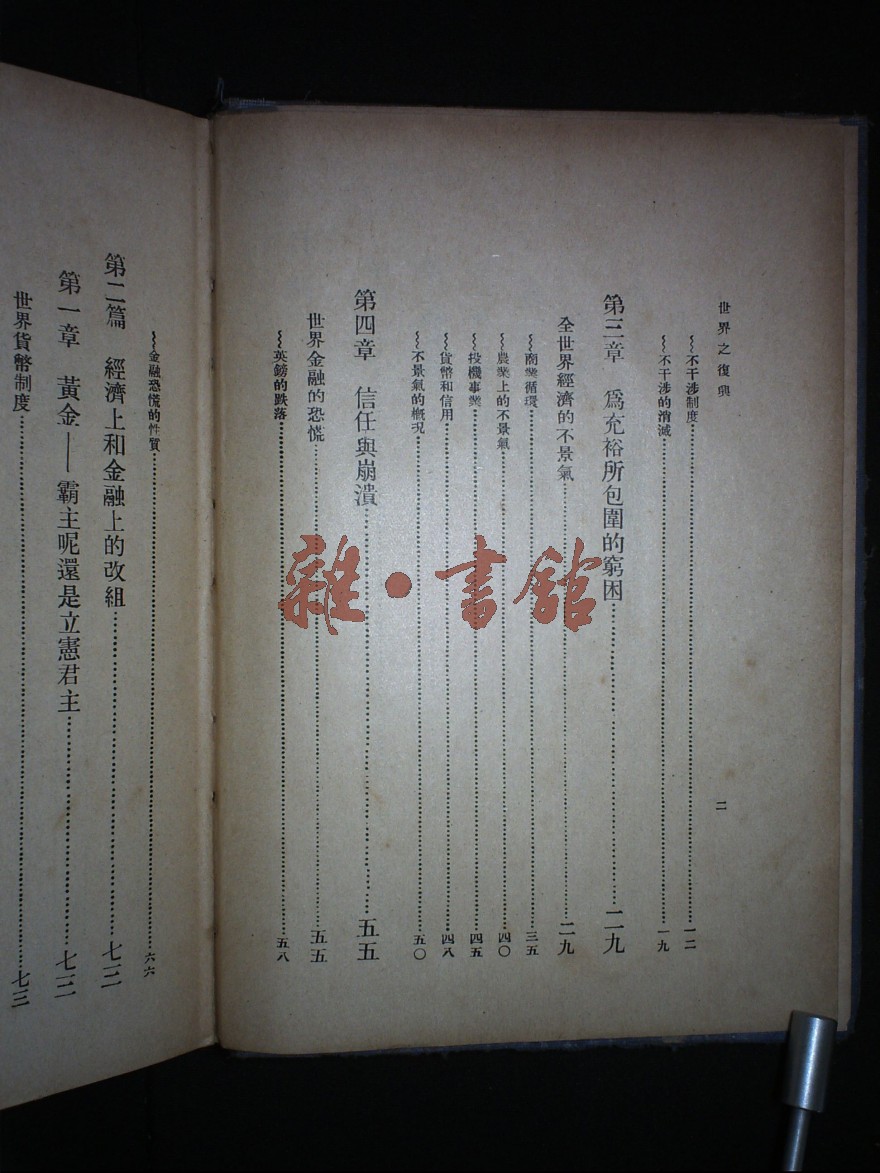 世界之復興
二
~不干涉制度……一二
~不干涉的消滅……一九
第三章 爲充裕所包圍的窮困……二九
全世界經濟的不景氣……二九
~商業循環……三五
~農業上的不景氣……四〇
~投機事業……四五
~貨幣和信用……四八
~不景氣的槪況……五〇
第四章 信任與崩潰……五五
世界金融的恐慌……五五
~英鎊的跌落……五八
~金融恐慌的性質……六六
第二篇 經濟上和金融上的改組……七三
第一章 黃金——霸主呢還是立憲君主……七三
世界貨幣制度……七三
雜·書館